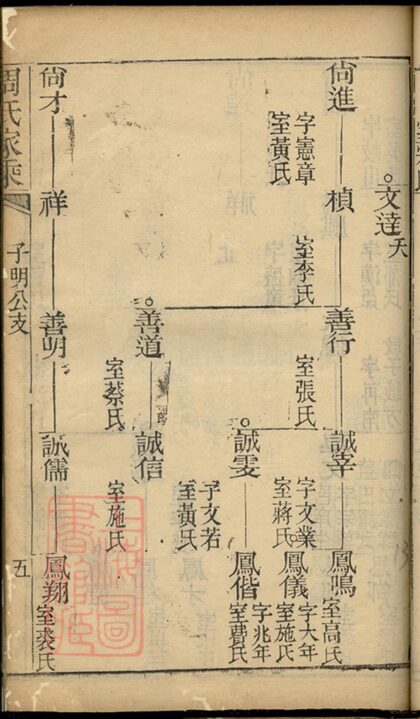 文達夭
尙進
字憲章
室黃氏
楨
室李氏
善行
室張氏
誠宰
字文業
室蔣氏
鳳鳴
室高氏
鳳儀
字大年
室施氏
誠雯
字文若
室黃氏
鳳偕
字兆年
室費氏
善道
室蔡氏
誠信
室施氏
尙才
祥
善明
誠儒
鳳翔
室裘氏
周氏家乘
子明公支
五